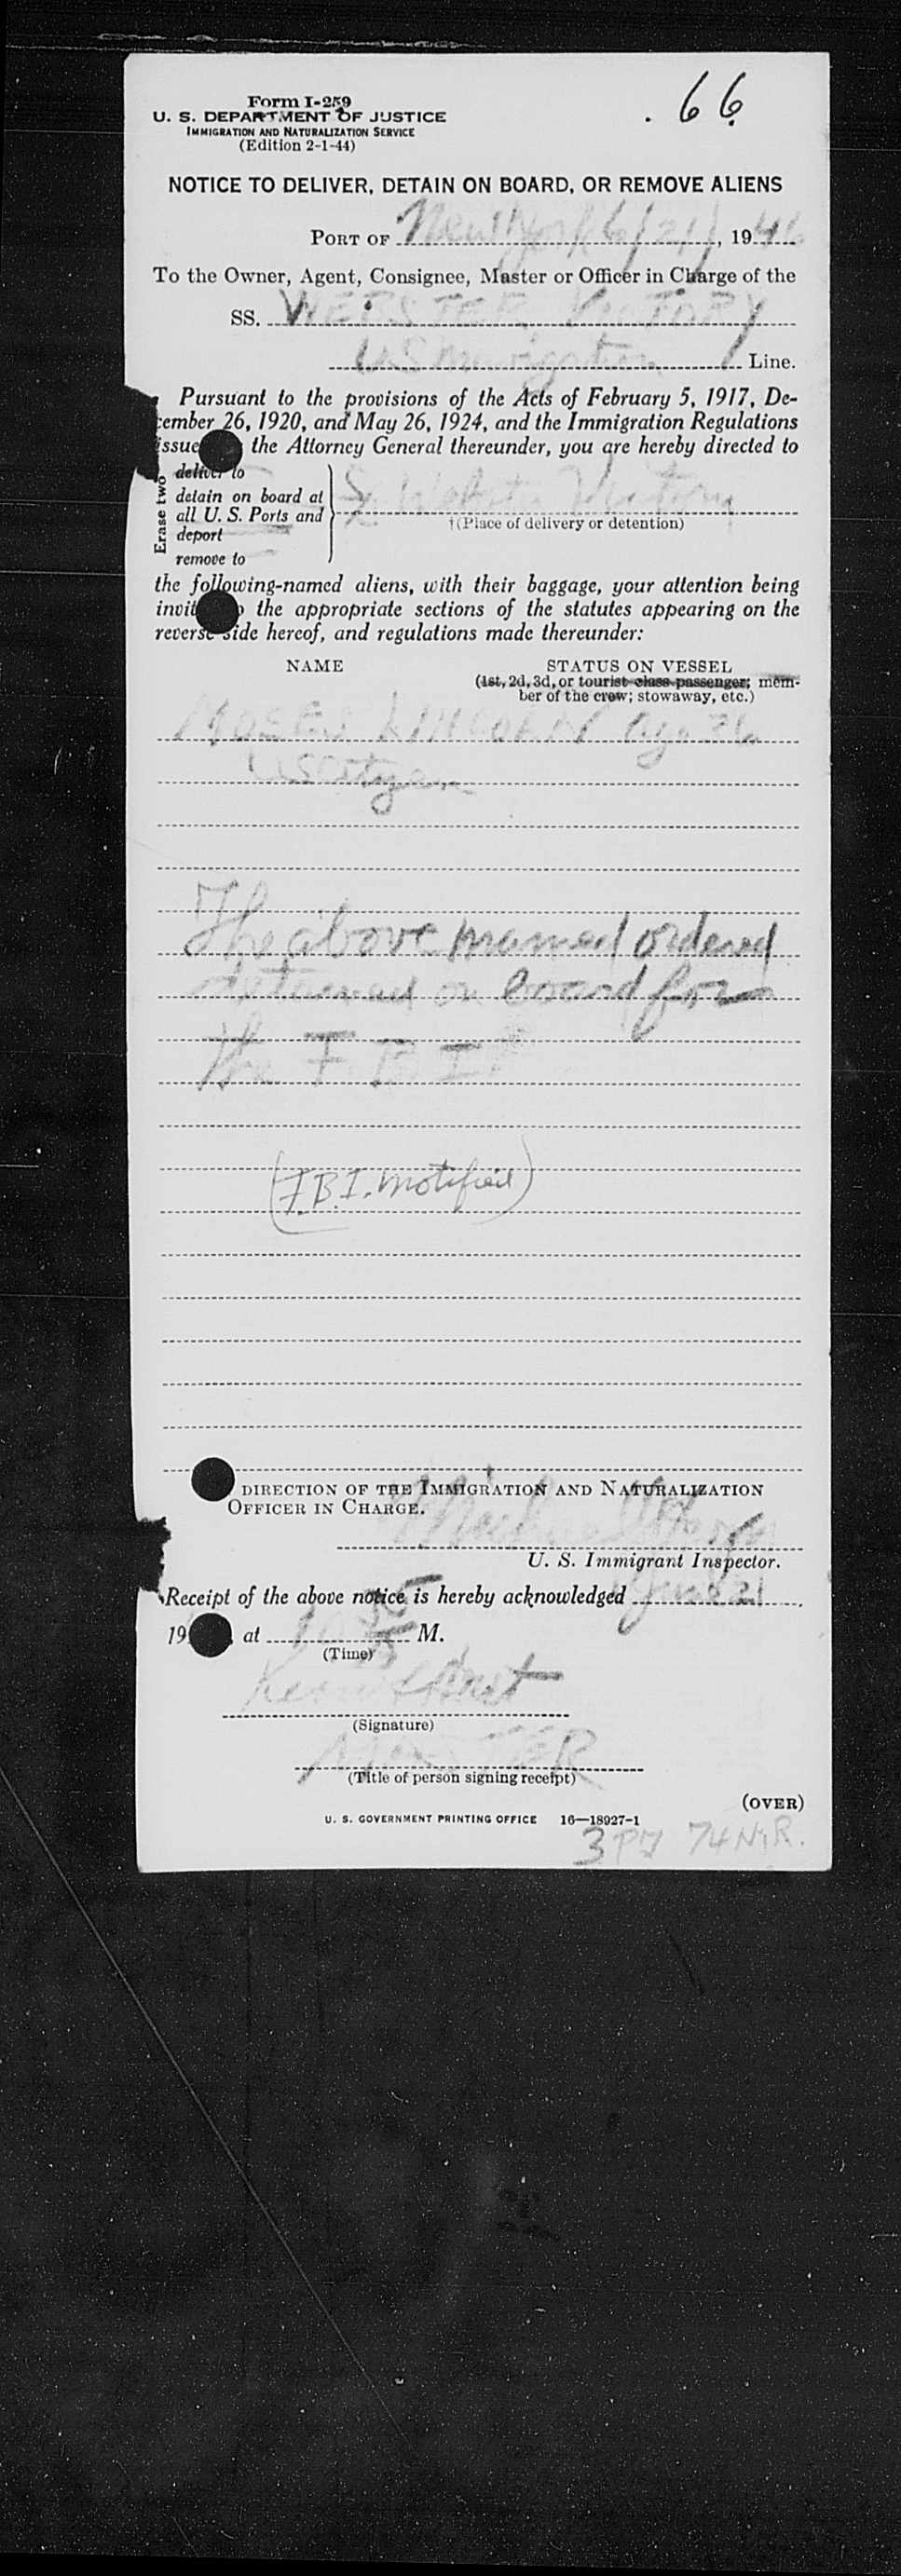 Form I-259
U. S. DEPARTMENT OF JUSTICE
IMMIGRATION AND NATURALIZATION SERVICE
(Edition 2-1-44)
66
NOTICE TO DELIVER, DETAIN ON BOARD, OR REMOVE ALIENS
PORT OF New York 6/21, 1946
To the Owner, Agent, Consignee, Master or Officer in Charge of the
SS. WEBSTER VICTORY
US Navigation Line.
Pursuant to the provisions of the Acts of February 5, 1917, De-
cember 26, 1920, and May 26, 1924, and the Immigration Regulations
issue the Attorney General thereunder, you are hereby directed to
Erase two
deliver to
detain on board at
all U. S. Ports and
deport
remove to
SS Webster Victory
†(Place of delivery or detention)
the following-named aliens, with their baggage, your attention being
invit the appropriate sections of the statutes appearing on the
reverse side hereof, and regulations made thereunder:
NAME STATUS ON VESSEL
(1st, 2d, 3d, or tourist class passenger; mem-
ber of the crew; stowaway, etc.)
MOSES LINCOLN age 36
US Citizen
The above named ordered
detained on board for
the F. B. I.
(F.B.I. notified)
DIRECTION OF THE IMMIGRATION AND NATURALIZATION
OFFICER IN CHARGE.
Michael
U. S. Immigrant Inspector.
Receipt of the above notice is hereby acknowledged June 21,
19 , at M.
(Time)
(Signature)
MASTER
(Title of person signing receipt)
(OVER)
U. S. GOVERNMENT PRINTING OFFICE 16—18927-1
74 N.R.